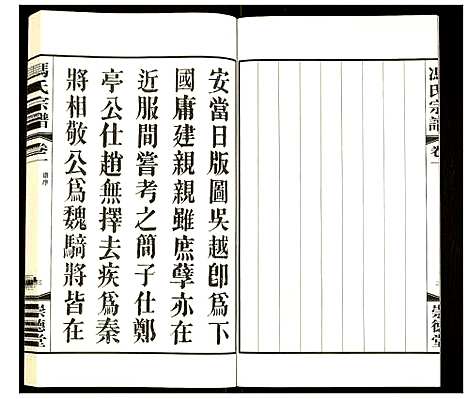 馮氏宗譜
卷一
崇德堂
安當日版圖吳越卽為下
國庸建親親雖庶孽亦在
近服間嘗考之簡子仕鄭
亭公仕趙無擇去疾為秦
將相敬公為魏騎將皆在
馮氏宗譜
卷一
譜序
崇德堂